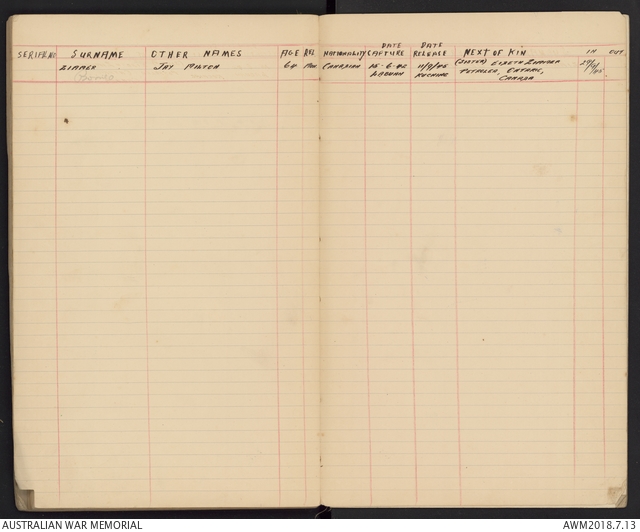 SERIAL No. SURNAME OTHER NAMES AGE REL NATIONALITY DATE CAPTURE DATE RELEASE NEXT OF KIN IN OUT
ZIMMER JAY MILTON 64 CANADIAN 15-6-42 11/9/45 (SISTER) ZIMMER 27/9/45
LABUAN KUCHING CANADA
AUSTRALIAN WAR MEMORIAL AWM2018.7.13